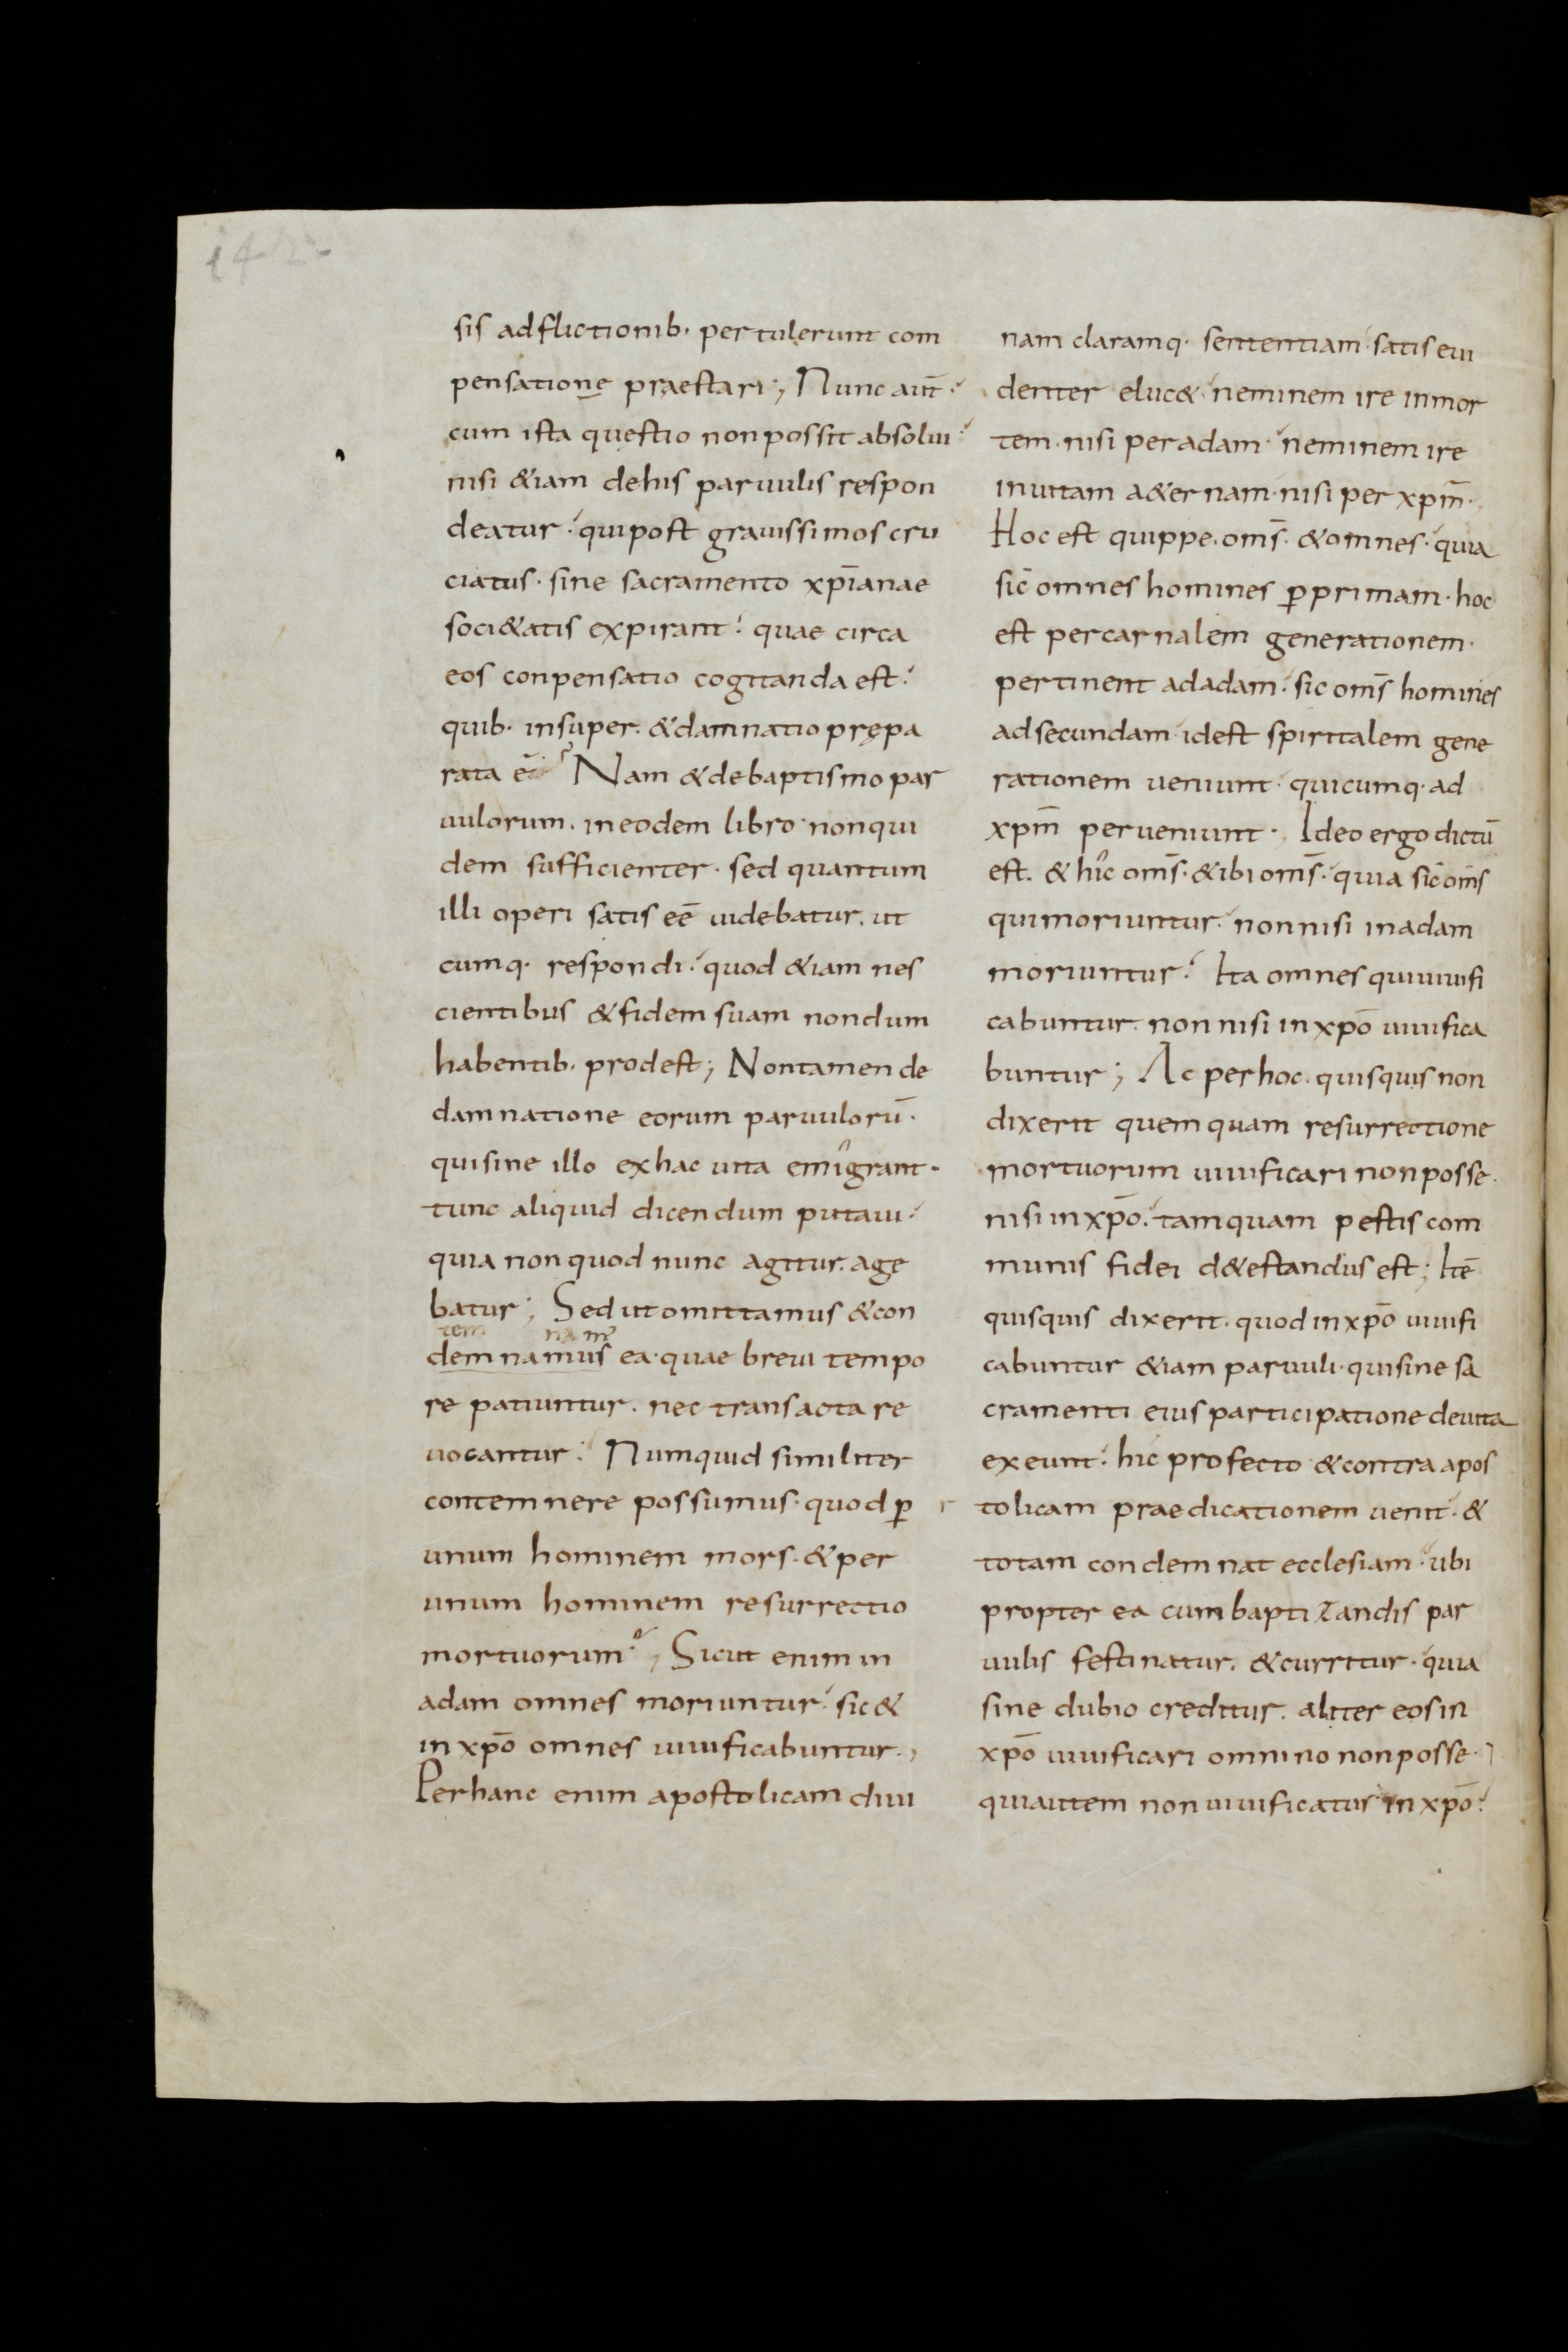 142
sis adflictionib· pertulerunt com
pensatione praestari; Nunc aut̄·
cum ista questio non possit absolui
nisi &iam dehis paruulis respon
deatur· quipost grauissimos cru
ciatus· sine sacramento xp̄ianae
soci&atis expirant· quae circa
eos conpensatio cogitanda est·
quib· insuper· &damnatio prępa
rata ē? Nam &debaptismo par
uulorum· ineodem libro· nonqui
dem sufficienter· sed quantum
illi operi satis eē uidebatur· ut
cumq· respondi· quod &iam nes
cientibus &fidem suam nondum
habentib· prodest; Nontamen de
damnatione eorum paruulorū·
quisine illo exhac uita emigrant·
tunc aliquid dicendum putaui·
quia non quod nunc agitur· age
batur; Sed ut omittamus &con
tem nam
demnamus ea· quae breui tempo
re patiuntur· nec transacta re
uocantur· Numquid similiter
contemnere possumus· quod ꝑ
unum hominem mors· &per
unum hominem resurrectio
mortuorum?; Sicut enim in
adam omnes moriuntur· sic &
in xp̄o omnes uiuificabuntur·,
Perhanc enim apostolicam diui
nam claramq· sententiam· satis eui
denter eluc&· neminem ire inmor
tem· nisi per adam· neminem ire
inuitam a&ernam· nisi per xpm̄·
Hoc est quippe· oms̄· &omnes· quia
sic omnes homines ꝑprimam· hoc
est percarnalem generationem·
pertinent adadam· sic oms̄ homines
adsecundam· idest spiritalem gene
rationem ueniunt· quicumq· ad
xpm̄ perueniunt· Ideo ergo dictū
est· & hic oms̄· &ibi oms̄· quia sic oms̄
quimoriuntur· nonnisi inadam
moriuntur· Ita omnes quiuiuifi
cabuntur· non nisi in xpō uiuifica
buntur; Ac perhoc· quisquis non
dixerit quemquam resurrectione
mortuorum uiuificari nonposse·
nisi inxpō· tamquam pestis com
munis fidei d&estandus est; Itē
quisquis dixerit· quod inxpō uiuifi
cabuntur &iam paruuli· quisine sa
cramenti eius participatione deuita
exeunt· hic profecto &contra apos
tolicam praedicationem uenit· &
totam condemnat ecclesiam· ubi
propter ea cum baptizandis par
uulis festinatur· &curritur· quia
sine dubio creditur· aliter eos in
xpō uiuificari omnino nonposse·
quiautem non uiuificatur in xpō·